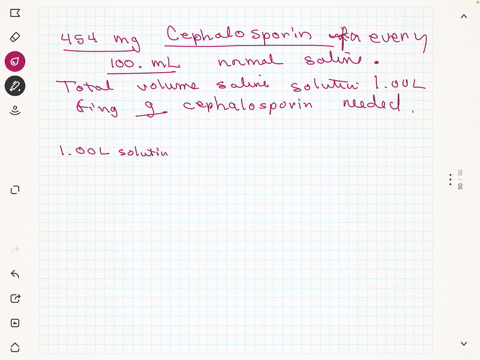 454 mg Cephalosporin for every
100. mL normal saline.
Total volume saline solutin 1.00L
fing g cephalosporin needed.
1.00L solutin
50 / 50